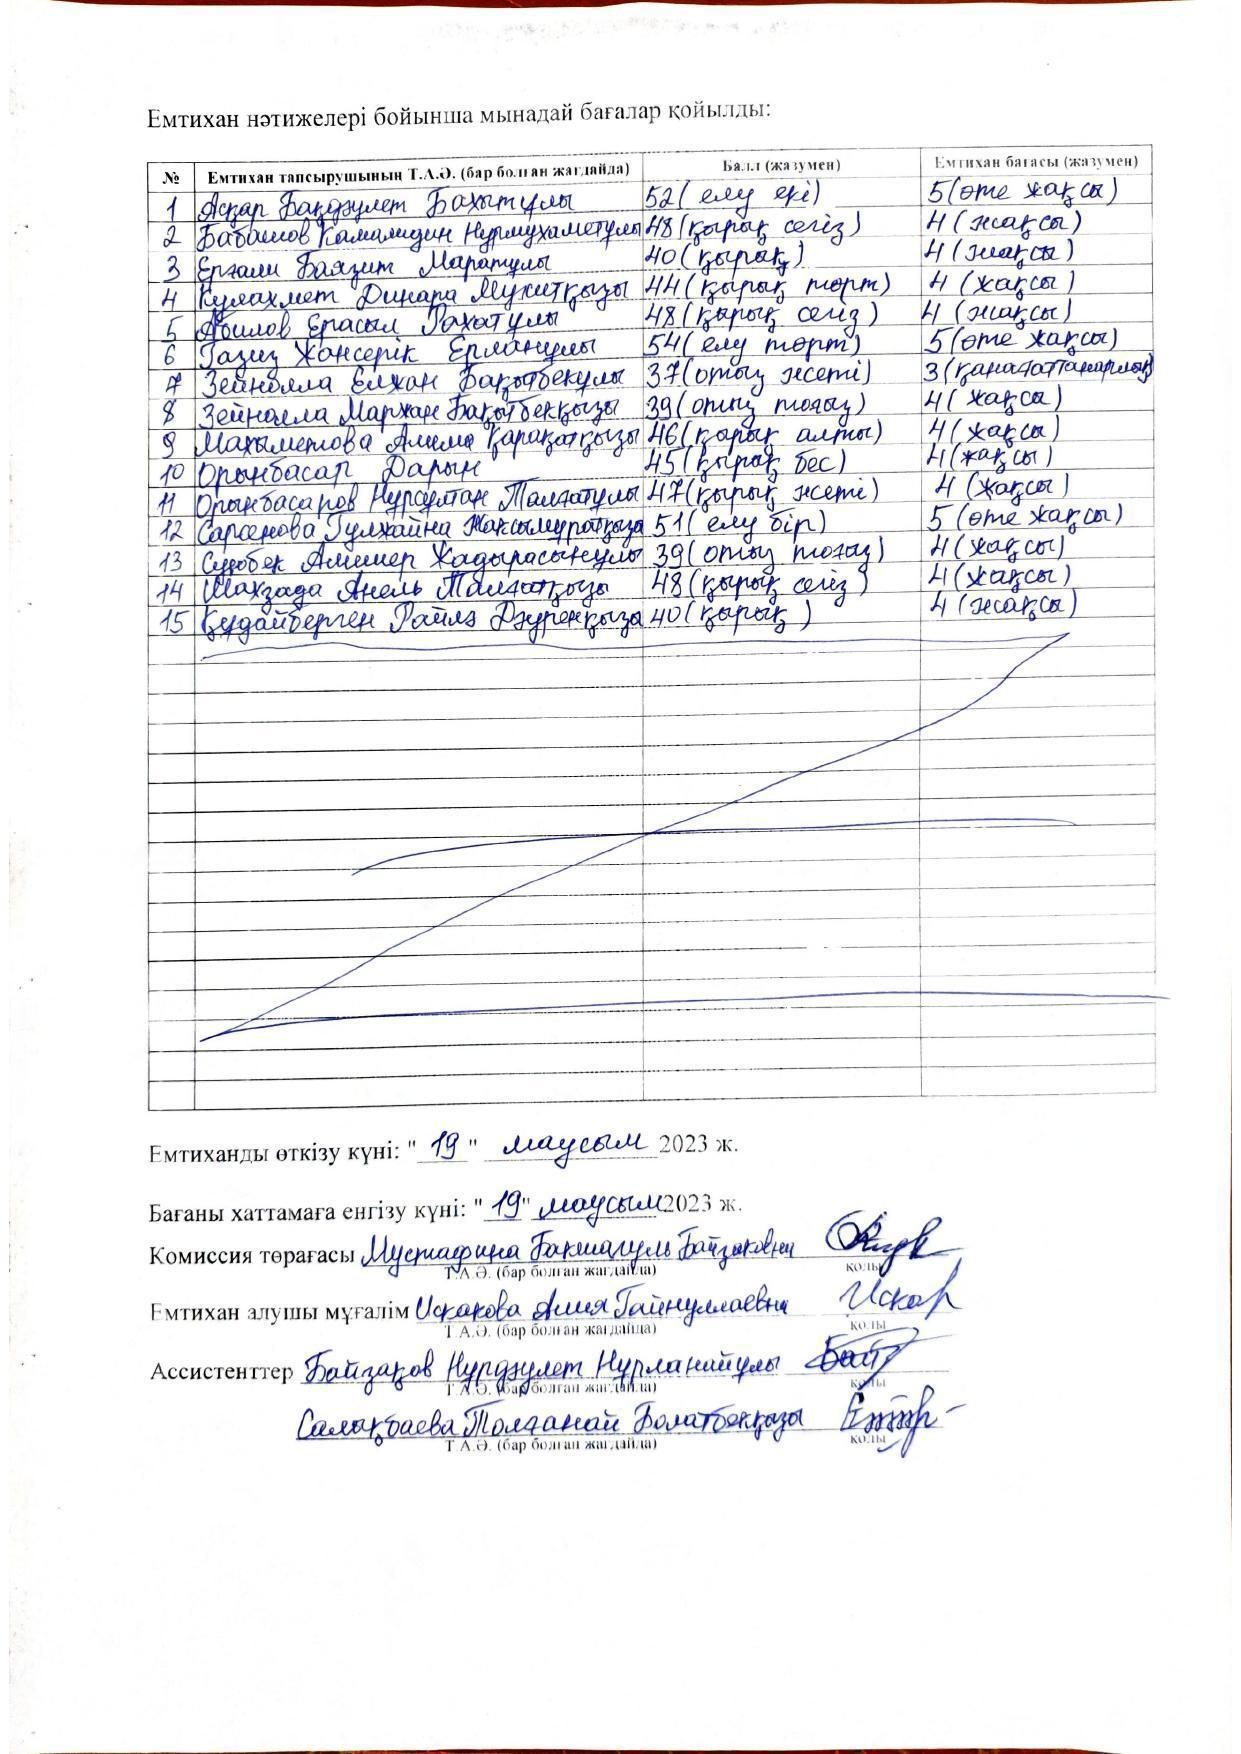 Емтихан нәтижелері бойынша мынадай бағалар қойылды:
№ Емтихан тапсырушының Т.А.Ә. (бар болған жағдайда) Балл (жазумен) Емтихан бағасы (жазумен)
1 Асқар Бақдәулет Бахытұлы 52 (елу екі) 5 (өте жақсы)
2 Бабашов Камалидин Нурмухаметұлы 48 (қырық сегіз) 4 (жақсы)
3 Ерғали Баязит Маратұлы 40 (қырық) 4 (жақсы)
4 Кулахмет Динара Мухитқызы 44 (қырық төрт) 4 (жақсы)
5 Абилов Ерасыл Рахатұлы 48 (қырық сегіз) 4 (жақсы)
6 Ғазиз Жансерік Ерланұлы 54 (елу төрт) 5 (өте жақсы)
7 Зейнолла Елхан Бақытбекұлы 37 (отыз жеті) 3 (қанағаттанарлық)
8 Зейнолла Маржан Бақытбекқызы 39 (отыз тоғыз) 4 (жақсы)
9 Махыметова Алима Қарақатқызы 46 (қырық алты) 4 (жақсы)
10 Орынбасар Дарын 45 (қырық бес) 4 (жақсы)
11 Орынбасаров Нұрсұлтан Талғатұлы 47 (қырық жеті) 4 (жақсы)
12 Сарсенова Гулжайна Жаксымуратқызы 51 (елу бір) 5 (өте жақсы)
13 Әлишер 39 (отыз тоғыз) 4 (жақсы)
14 Шахзада Анель Талғатқызы 48 (қырық сегіз) 4 (жақсы)
15 Құдайберген Райлә Дәуренқызы 40 (қырық) 4 (жақсы)
Емтиханды өткізу күні: "19" маусым 2023 ж.
Бағаны хаттамаға енгізу күні: "19" маусым 2023 ж.
Комиссия төрағасы Мустафина Бакшагуль Байзаковна
Т.А.Ә. (бар болған жағдайда) қолы
Емтихан алушы мұғалім Искакова Алия Гайнуллаевна Искак
Т.А.Ә. (бар болған жағдайда) қолы
Ассистенттер Байзақов Нұрдәулет Нұрланайұлы
Т.А.Ә. (бар болған жағдайда) қолы
Салықбаева Толғанай Болатбекқызы
Т.А.Ә. (бар болған жағдайда) қолы